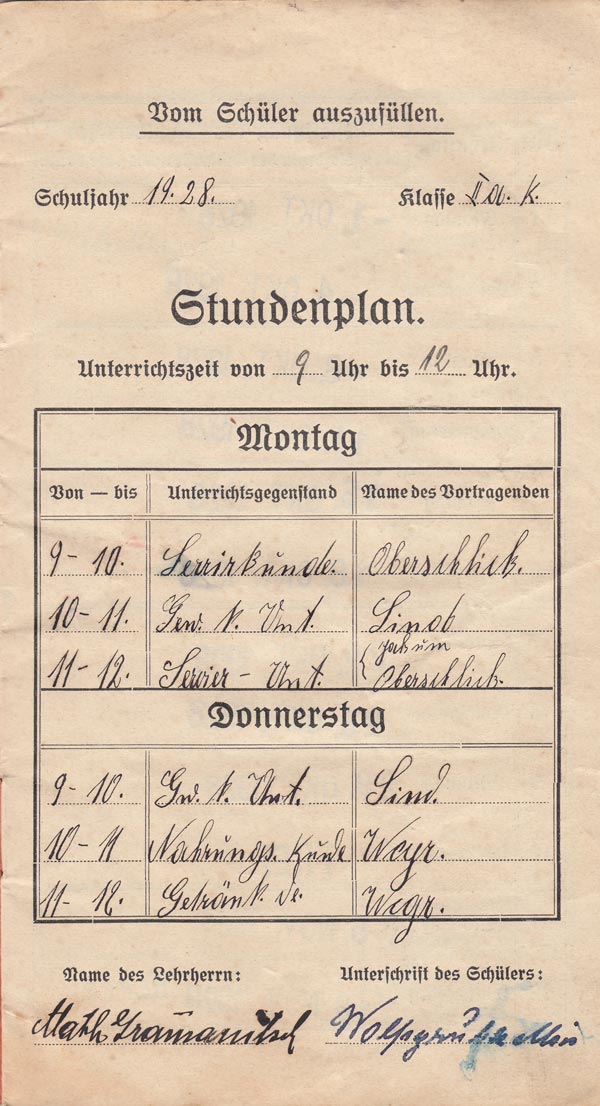 Vom Schüler auszufüllen.
Schuljahr 19 28. Klasse II a. K.
Stundenplan.
Unterrichtszeit von 9 Uhr bis 12 Uhr.
Montag
Von — bis Unterrichtsgegenstand Name des Vortragenden
9 - 10. Servirkunde. Oberschlick.
10 - 11. Gew. k. Unt.
11 - 12. Servier - Unt. Oberschlick.
Donnerstag
9 - 10. Gw. k. Unt.
10 - 11 Nahrungs. Kunde Weyr.
11 - 12. Getränk. de. Wegr.
Name des Lehrherrn: Unterschrift des Schülers: